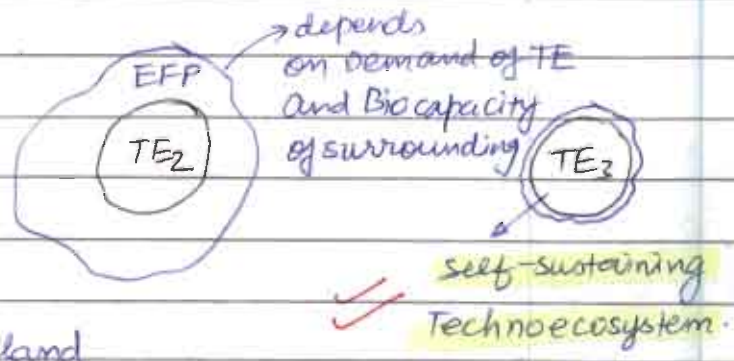 depends
on demand of TE
and Biocapacity
of surrounding
EFP
TE2
TE3
self-sustaining
Technoecosystem.
land